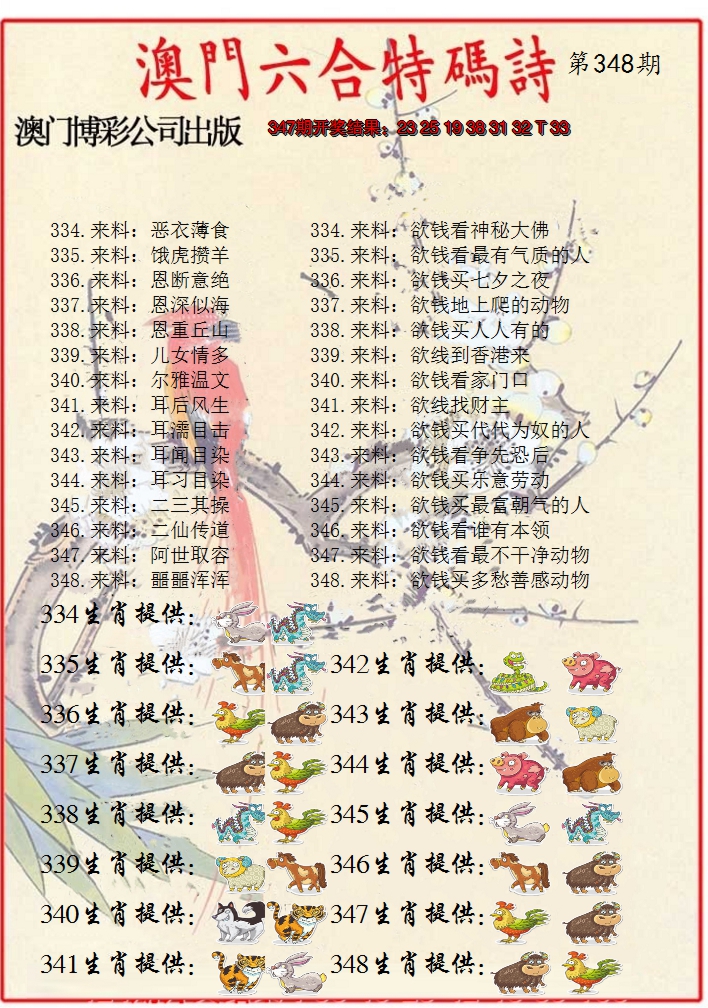 澳門六合特碼詩 第348期
澳门博彩公司出版 347期开奖结果：23 25 19 38 31 32 T 33
334.来料：恶衣薄食 334.来料：欲钱看神秘大佛
335.来料：饿虎攒羊 335.来料：欲钱看最有气质的人
336.来料：恩断意绝 336.来料：欲钱买七夕之夜
337.来料：恩深似海 337.来料：欲钱地上爬的动物
338.来料：恩重丘山 338.来料：欲钱买人人有的
339.来料：儿女情多 339.来料：欲线到香港来
340.来料：尔雅温文 340.来料：欲钱看家门口
341.来料：耳后风生 341.来料：欲线找财主
342.来料：耳濡目击 342.来料：欲钱买代代为奴的人
343.来料：耳闻目染 343.来料：欲钱看争先恐后
344.来料：耳习目染 344.来料：欲钱买乐意劳动
345.来料：二三其操 345.来料：欲钱买最富朝气的人
346.来料：二仙传道 346.来料：欲钱看谁有本领
347.来料：阿世取容 347.来料：欲钱看最不干净动物
348.来料：噩噩浑浑 348.来料：欲钱买多愁善感动物
334生肖提供：
335生肖提供： 342生肖提供：
336生肖提供： 343生肖提供：
337生肖提供： 344生肖提供：
338生肖提供： 345生肖提供：
339生肖提供： 346生肖提供：
340生肖提供： 347生肖提供：
341生肖提供： 348生肖提供：